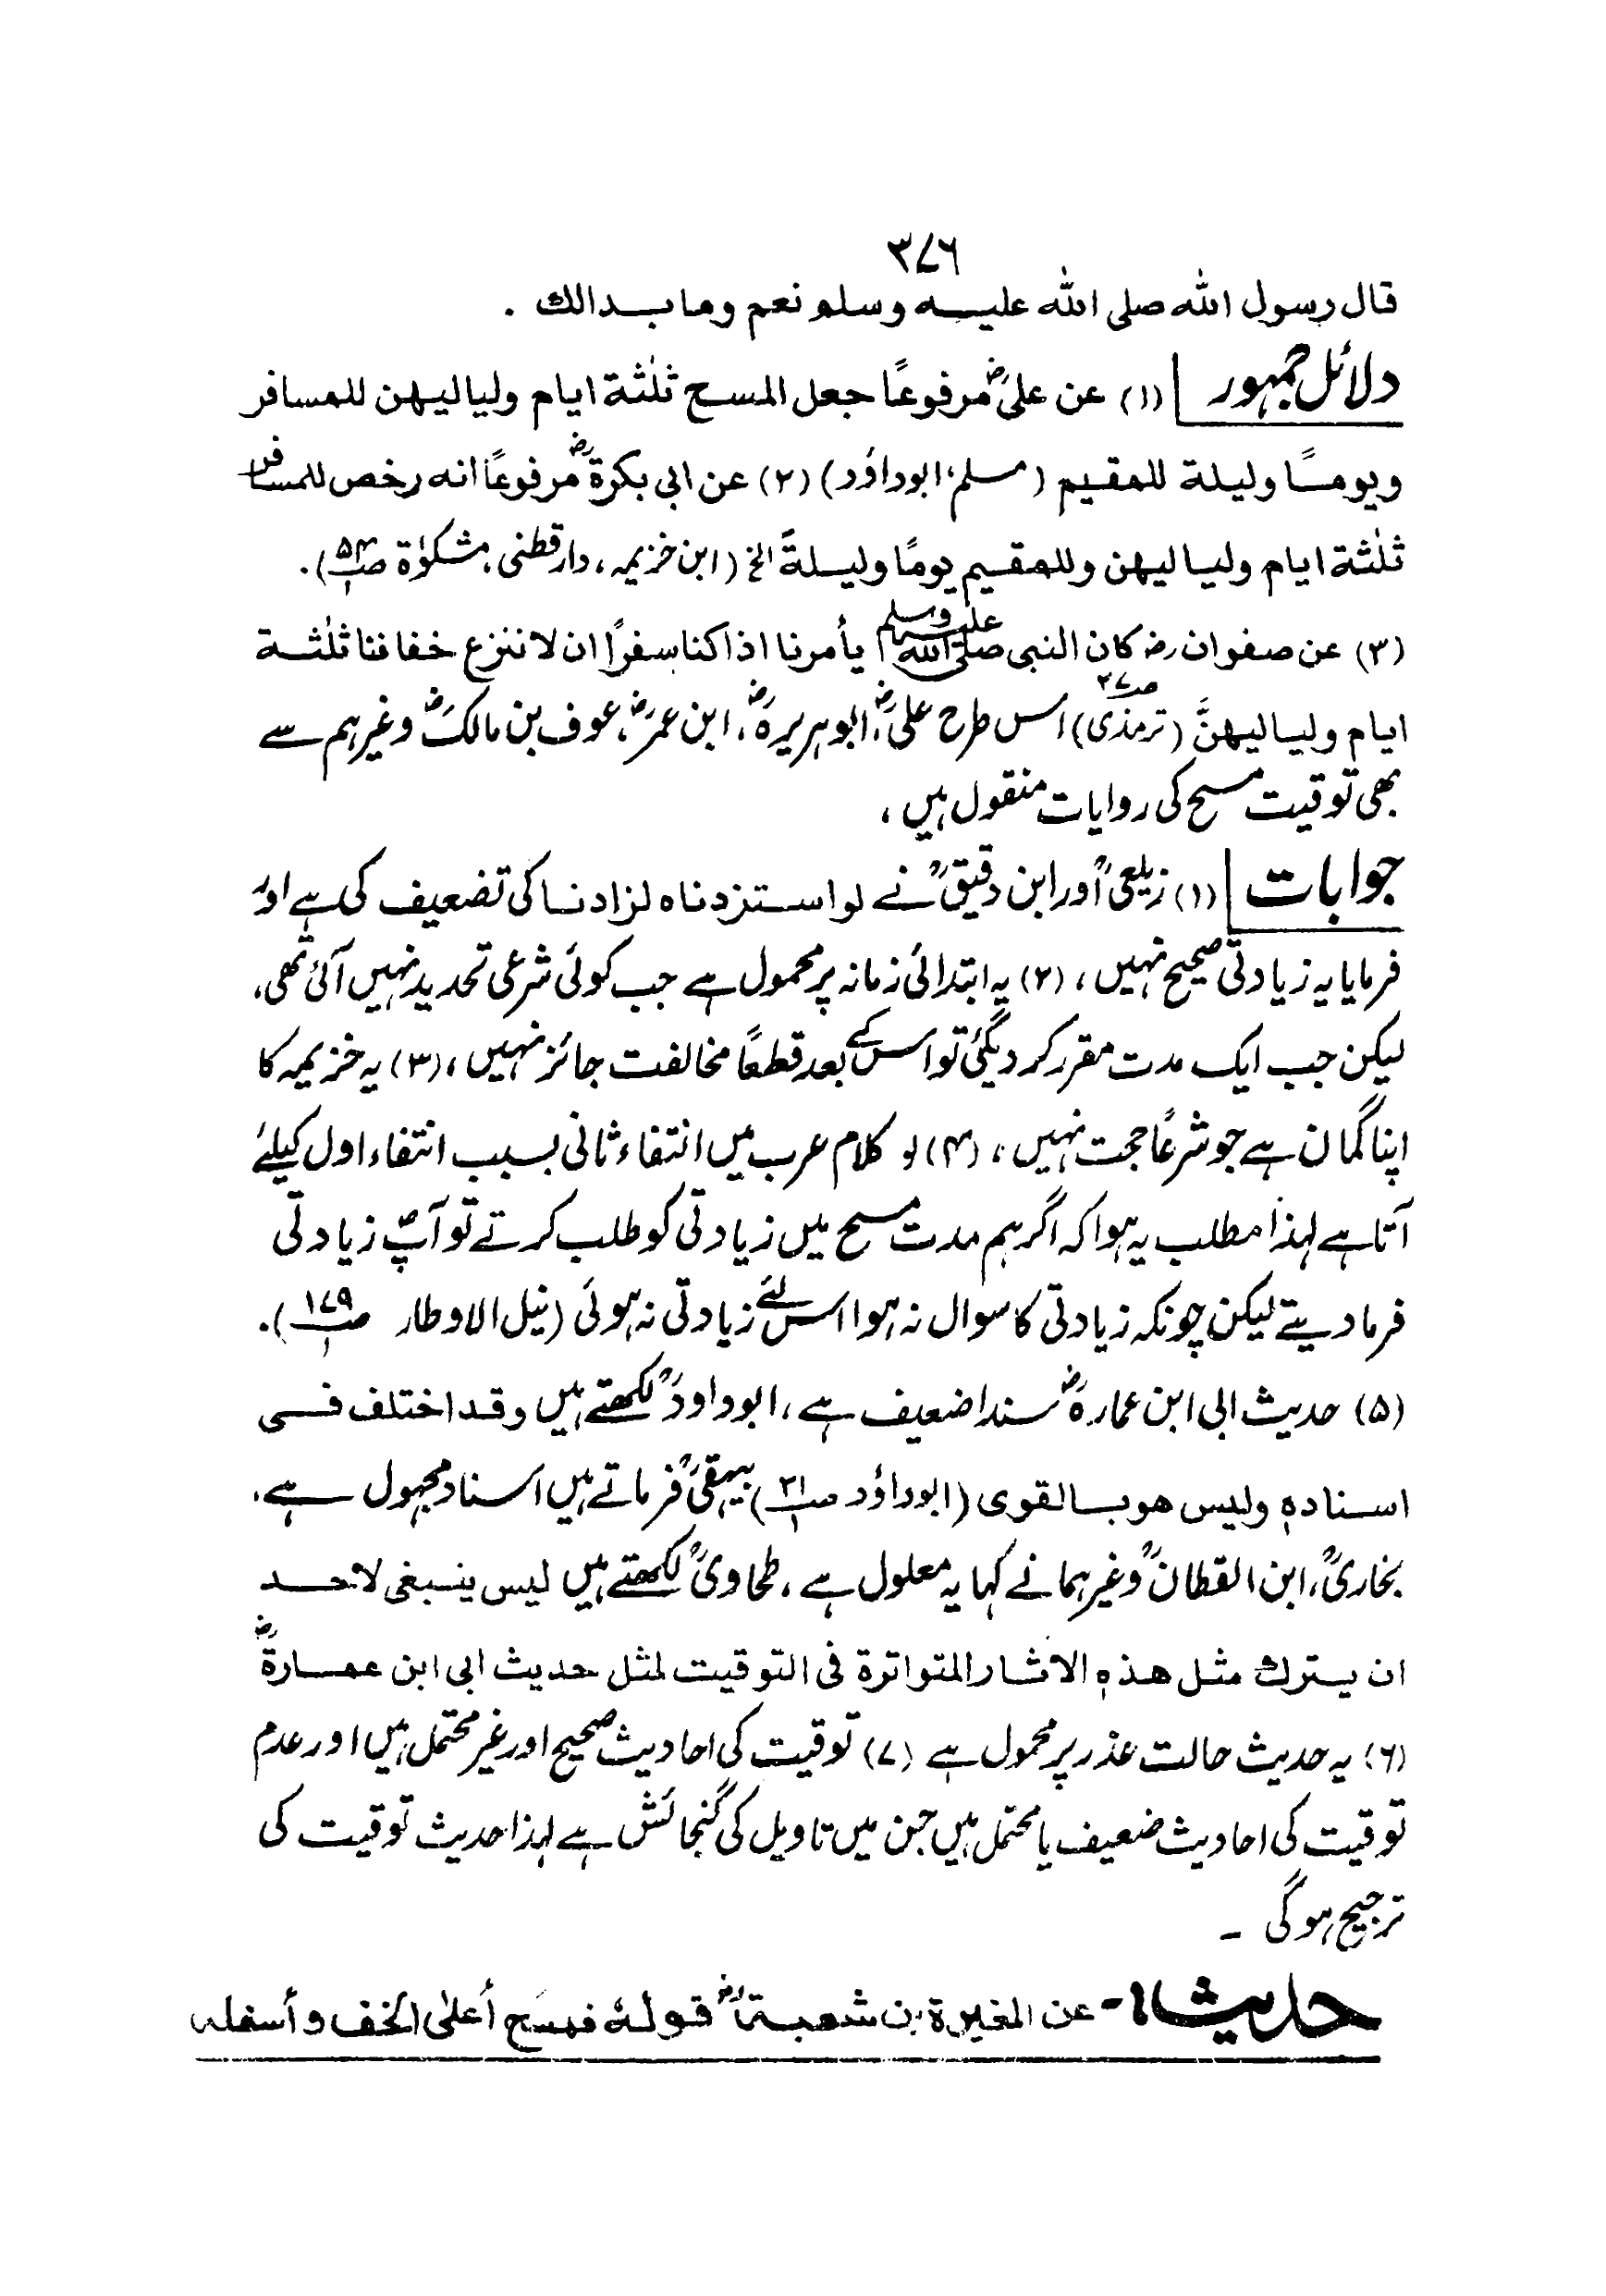 ۳۷۶
قال رسول الله صلی الله علیه وسلم نعم وما بدالك .
دلائل جمہور | (۱) عن علیؓ مرفوعًا جعل المسح ثلٰثة ایام ولیالیهن للمسافر
ویومًا ولیلة للمقیم (مسلم، ابوداؤد) (۲) عن ابی بکرةؓ مرفوعًا انه رخص للمسافر
ثلٰثة ایام ولیالیهن وللمقیم یومًا ولیلةً الخ (ابن خزیمہ، دارقطنی، مشکوٰة ص۵۴/۱).
(۳) عن صفوان رض کان النبی صلی الله علیه وسلم یأمرنا اذا کنا سفرًا ان لا ننزع خفافنا ثلٰثة
ایام ولیالیهنَّ (ترمذی ص۲۷) اس طرح علیؓ، ابوہریرہؓ، ابن عمرؓ، عوف بن مالکؓ وغیرہم سے
بھی توقیت مسح کی روایات منقول ہیں ،
جوابات | (۱) زیلعیؒ اور ابن دقیقؒ نے لو استزدناہ لزادنا کی تضعیف کی ہے اور
فرمایا یہ زیادتی صحیح نہیں ، (۲) یہ ابتدائی زمانہ پر محمول ہے جب کوئی شرعی تحدید نہیں آئی تھی،
لیکن جب ایک مدت مقرر کردیگئی تو اس کے بعد قطعًا مخالفت جائز نہیں ، (۳) یہ خزیمہ کا
اپنا گمان ہے جو شرعًا حجت نہیں ، (۴) لو کلام عرب میں انتفاء ثانی بسبب انتفاء اول کیلئے
آتا ہے لہذا مطلب یہ ہوا کہ اگر ہم مدت مسح میں زیادتی کو طلب کرتے تو آپؐ زیادتی
فرما دیتے لیکن چونکہ زیادتی کا سوال نہ ہوا اس لئے زیادتی نہ ہوئی (نیل الاوطار ص۱۷۹/۱).
(۵) حدیث ابی ابن عمارہؓ سندا ضعیف ہے، ابوداودؒ لکھتے ہیں وقد اختلف فی
اسنادہٖ ولیس هو بالقوی (ابوداؤد ص۲۱/۱) بیہقیؒ فرماتے ہیں اسناد مجہول ہے،
بخاریؒ، ابن القطانؒ وغیرہما نے کہا یہ معلول ہے، طحاویؒ لکھتے ہیں لیس ینبغی لاحد
ان یترك مثل هذہٖ الاٰثار المتواترة فی التوقیت لمثل حدیث ابی ابن عمارةؓ
(۶) یہ حدیث حالت عذر پر محمول ہے (۷) توقیت کی احادیث صحیح اور غیر محتمل ہیں اور عدم
توقیت کی احادیث ضعیف یا محتمل ہیں جن میں تاویل کی گنجائش ہے لہذا حدیث توقیت کی
ترجیح ہوگی ـ
حدیث :- عن المغیرة بن شعبةؓ قولهٗ فمسَح أعلیٰ الخف وأسفله